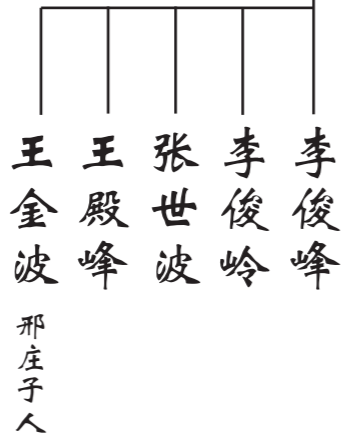 李俊峰
李俊岭
张世波
王殿峰
王金波
邢庄子人